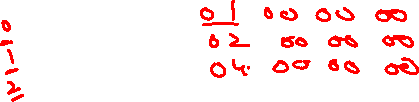 01 00 00 00
02 00 00 00
04 00 00 00